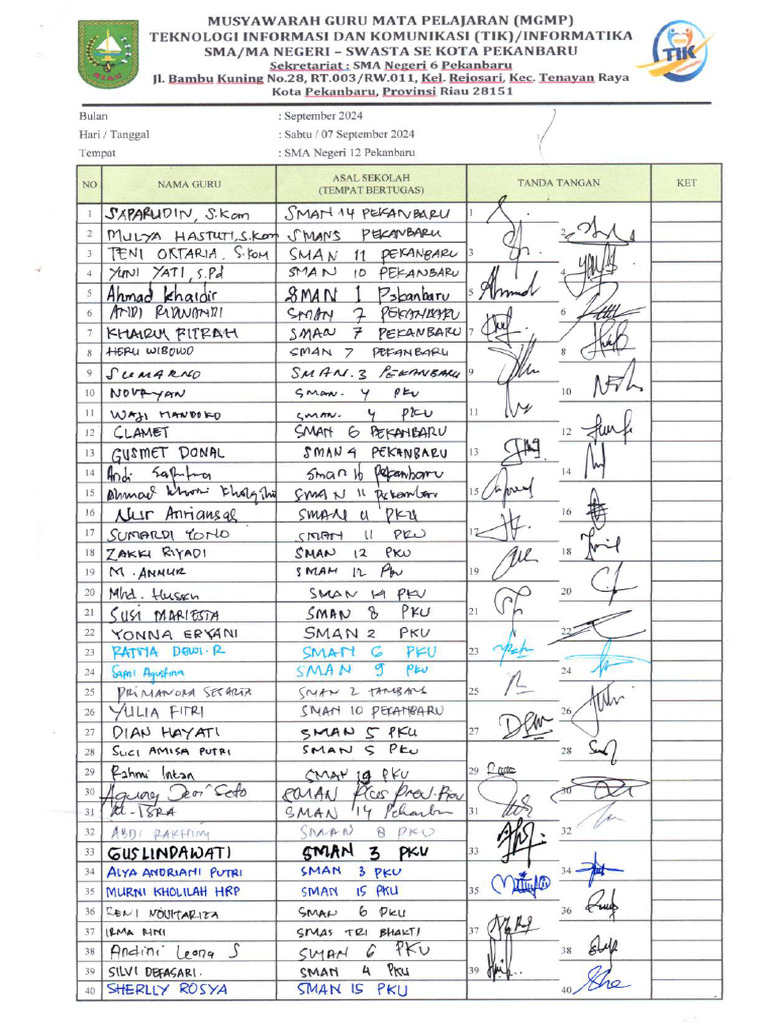 MUSYAWARAH GURU MATA PELAJARAN (MGMP)
TEKNOLOGI INFORMASI DAN KOMUNIKASI (TIK)/INFORMATIKA
SMA/MA NEGERI – SWASTA SE KOTA PEKANBARU
Sekretariat : SMA Negeri 6 Pekanbaru
Jl. Bambu Kuning No.28, RT.003/RW.011, Kel. Rejosari, Kec. Tenayan Raya
Kota Pekanbaru, Provinsi Riau 28151
RIAU
TIK
Bulan : September 2024
Hari / Tanggal : Sabtu / 07 September 2024
Tempat : SMA Negeri 12 Pekanbaru
NO NAMA GURU ASAL SEKOLAH (TEMPAT BERTUGAS) TANDA TANGAN KET
1 SAPARUDIN, S.Kom SMAN 14 PEKANBARU 1
2 MULYA HASTUTI, S.Kom SMAN5 PEKANBARU 2
3 TENI OKTARIA, S.KOM SMAN 11 PEKANBARU 3
4 YUNI YATI, S.Pd SMAN 10 PEKANBARU 4
5 Ahmad Khaidir SMAN 1 Pekanbaru 5 Ahmad
6 ANDI RIDWANDI SMAN 7 PEKANBARU 6
7 KHAIRUL FITRAH SMAN 7 PEKANBARU 7
8 HERU WIBOWO SMAN 7 PEKANBARU 8
9 SUMARNO SMAN.3 PEKANBARU 9
10 NOVRYAN SMAN. 4 PKU 10
11 WAJI HANDOKO SMAN. 4 PKU 11
12 SLAMET SMAN 6 PEKANBARU 12
13 GUSMET DONAL SMAN 4 PEKANBARU 13
14 Andi Saputra SMAN 16 Pekanbaru 14
15 Ahmad SMAN 11 Pekanbaru 15
16 Nur Anriansas SMAN 11 PKU 16
17 SUMARDI YONO SMAN 11 PKU 17
18 ZAKKI RIYADI SMAN 12 PKU 18
19 M. ANNUR SMAN 12 PKU 19
20 Mhd. Hussen SMAN 14 PKU 20
21 SUSI MARIESTA SMAN 8 PKU 21
22 YONNA ERYANI SMAN 2 PKU 22
23 RATNA DEWI.R SMAN 6 PKU 23
24 Sapni Agustina SMAN 9 PKU 24
25 PRIMANDRA SMAN 2 TAMBANG 25
26 YULIA FITRI SMAN 10 PEKANBARU 26
27 DIAN HAYATI SMAN 5 PKU 27
28 SUCI AMISA PUTRI SMAN 5 PKU 28
29 Rahmi Intan SMAN 19 PKU 29
30 Agung Seto SMAN Plus Prov. 30
31 SMAN 14 Pekanbaru 31
32 ABDI RAKHIM SMAN 8 PKU 32
33 GUSLINDAWATI SMAN 3 PKU 33
34 ALYA ANDRIANI PUTRI SMAN 3 PKU 34
35 MURNI KHOLILAH HRP SMAN 15 PKU 35
36 RENI NOVITARIZA SMAN 6 PKU 36
37 IRMA RINI SMAS TRI BHAKTI 37
38 Andini Leona S SMAN 6 PKU 38
39 SILVI DEFASARI. SMAN 4 PKU 39
40 SHERLLY ROSYA SMAN 15 PKU 40